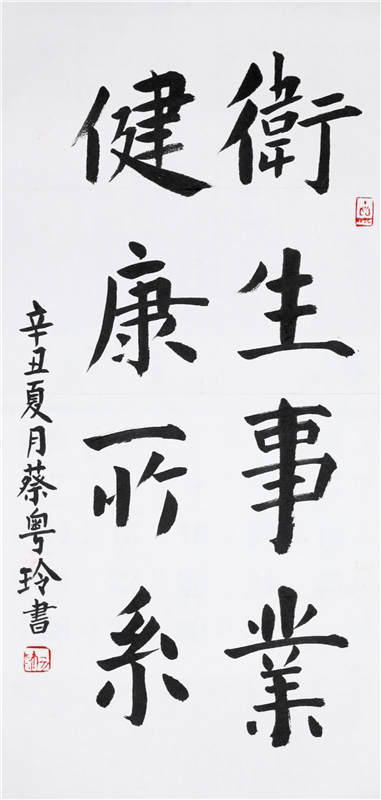 衛生事業
健康所系
辛丑夏月蔡粤玲書